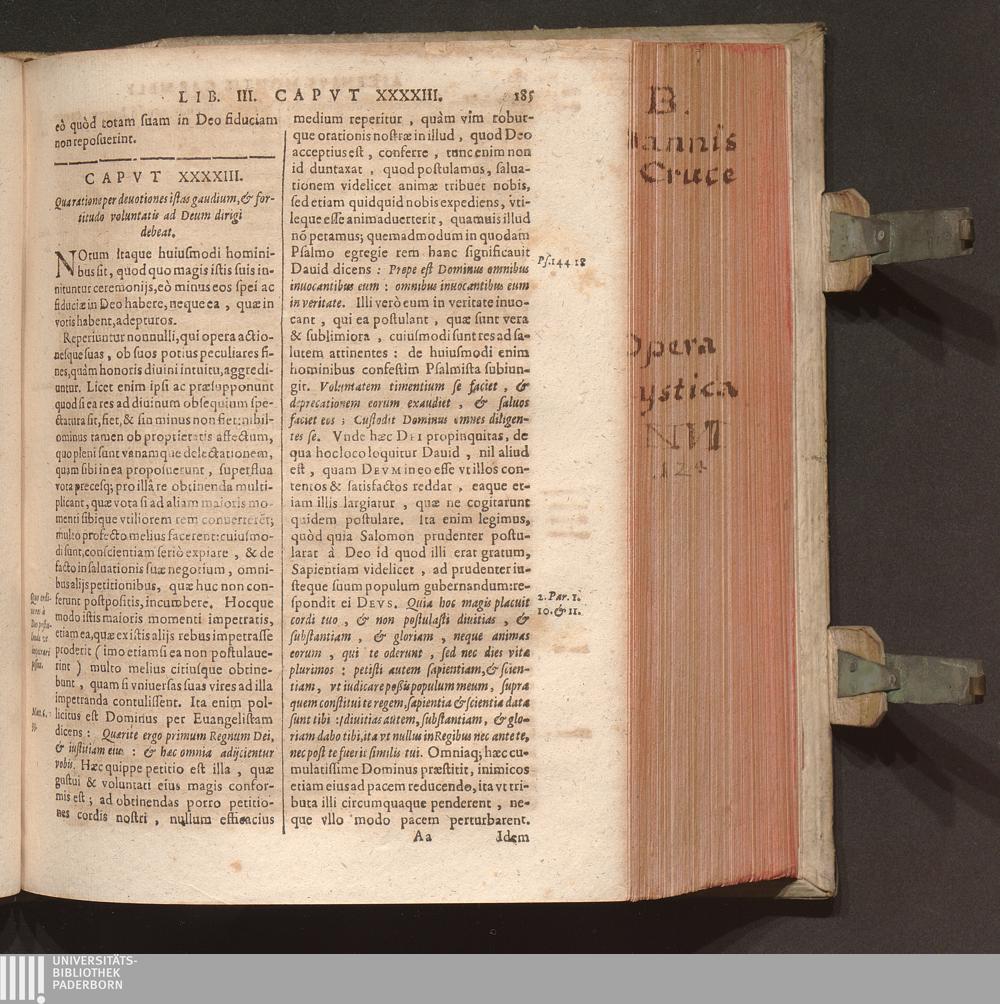 LIB. III. CAPVT XXXXIII. 185
eò quòd totam suam in Deo fiduciam
non reposuerint.
CAPVT XXXXIII.
Qua ratione per deuotiones istas gaudium, & for-
titudo voluntatis ad Deum dirigi
debeat.
NOtum itaque huiusmodi homini-
bus sit, quod quo magis istis suis in-
nituntur ceremonijs, eò minus eos spei ac
fiduciæ in Deo habere, neque ea, quæ in
votis habent, adepturos.
Reperiuntur nonnulli, qui opera actio-
nesque suas, ob suos potius peculiares fi-
nes, quàm honoris diuini intuitu, aggredi-
untur. Licet enim ipsi ac præsupponunt
quod si ea res ad diuinum obsequium spe-
ctatura sit, fiet, & sin minus non fiet: nihil-
ominus tamen ob proprietatis affectum,
quo pleni sunt vanamque delectationem,
quam sibi in ea proposuerunt, superflua
vota precesq; pro illâ re obtinenda multi-
plicant, quæ vota si ad aliam maioris mo-
menti sibique vtiliorem rem conuerterēt;
multo profecto melius facerent: cuiusmo-
di sunt, conscientiam seriò expiare, & de
facto in saluationis suæ negotium, omni-
bus alijs petitionibus, quæ huc non con-
ferunt postpositis, incumbere. Hocque
modo istis maioris momenti impetratis,
etiam ea, quæ ex istis alijs rebus impetrasse
proderit (imo etiamsi ea non postulaue-
rint) multo melius citiusque obtine-
bunt, quam si vniuersas suas vires ad illa
impetranda contulissent. Ita enim pol-
licitus est Dominus per Euangelistam
dicens: Quærite ergo primum Regnum Dei,
& iustitiam eius: & hæc omnia adijcientur
vobis. Hæc quippe petitio est illa, quæ
gustui & voluntati eius magis confor-
mis est; ad obtinendas porro petitio-
nes cordis nostri, nullum efficacius
Mat. 6.
33.
medium reperitur, quàm vim robur-
que orationis nostræ in illud, quod Deo
acceptius est, conferre, tunc enim non
id duntaxat, quod postulamus, salua-
tionem videlicet animæ tribuet nobis,
sed etiam quidquid nobis expediens, vti-
leque esse animaduerterit, quamuis illud
nō petamus; quemadmodum in quodam
Psalmo egregie rem hanc significauit
Dauid dicens: Prope est Dominus omnibus
inuocantibus eum: omnibus inuocantibus eum
in veritate. Illi verò eum in veritate inuo-
cant, qui ea postulant, quæ sunt vera
& sublimiora, cuiusmodi sunt res ad sa-
lutem attinentes: de huiusmodi enim
hominibus confestim Psalmista subiun-
git. Voluntatem timentium se faciet, &
deprecationem eorum exaudiet, & saluos
faciet eos; Custodit Dominus omnes diligen-
tes se. Vnde hæc DEI propinquitas, de
qua hoc loco loquitur Dauid, nil aliud
est, quam DEVM in eo esse vt illos con-
tentos & satisfactos reddat, eaque et-
iam illis largiatur, quæ ne cogitarunt
quidem postulare. Ita enim legimus,
quòd quia Salomon prudenter postu-
larat à Deo id quod illi erat gratum,
Sapientiam videlicet, ad prudenter iu-
steque suum populum gubernandum: re-
spondit ei DEVS. Quia hoc magis placuit
cordi tuo, & non postulasti diuitias, &
substantiam, & gloriam, neque animas
eorum, qui te oderunt, sed nec dies vitæ
plurimos: petisti autem sapientiam, & scien-
tiam, vt iudicare possis populum meum, supra
quem constitui te regem, sapientia & scientia data
sunt tibi: diuitias autem, substantiam, & glo-
riam dabo tibi, ita vt nullus in Regibus nec ante te,
nec post te fuerit similis tui. Omniaq; hæc cu-
mulatissime Dominus præstitit, inimicos
etiam eius ad pacem reducendo, ita vt tri-
buta illi circumquaque penderent, ne-
que vllo modo pacem perturbarent.
Aa Idem
Ps. 144 18
2. Par. 1.
10. & 11.
B.
annis
Cruce
Opera
ystica
UNIVERSITÄTS-
BIBLIOTHEK
PADERBORN